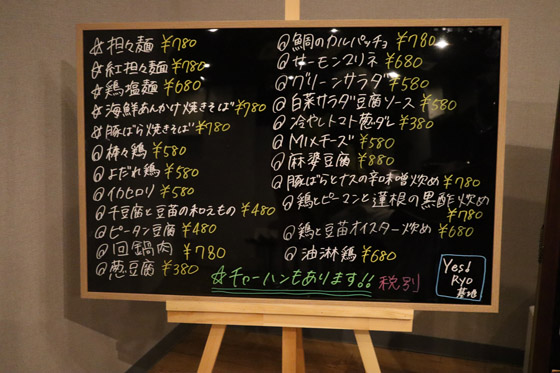 ☆担々麺 ¥780
☆紅担々麺 ¥780
☆鶏塩麺 ¥680
☆海鮮あんかけ焼きそば ¥780
☆豚ばら焼きそば ¥780
@棒々鶏 ¥580
@よだれ鶏 ¥580
@イカヒロリ ¥580
@干豆腐と豆苗の和えもの ¥480
@ピータン豆腐 ¥480
@回鍋肉 ¥780
@葱豆腐 ¥380
@鯛のカルパッチョ ¥780
@サーモンマリネ ¥680
@グリーンサラダ ¥580
@白菜サラダ豆腐ソース ¥580
@冷やしトマト葱ダレ ¥380
@MIXチーズ ¥580
@麻婆豆腐 ¥880
@豚ばらとナスの辛味噌炒め ¥780
@鶏とピーマンと蓮根の黒酢炒め
¥780
@鶏と豆苗オイスター炒め ¥680
@油淋鶏 ¥680
☆チャーハンもあります!! 税別
Yes!
Ryo
基地